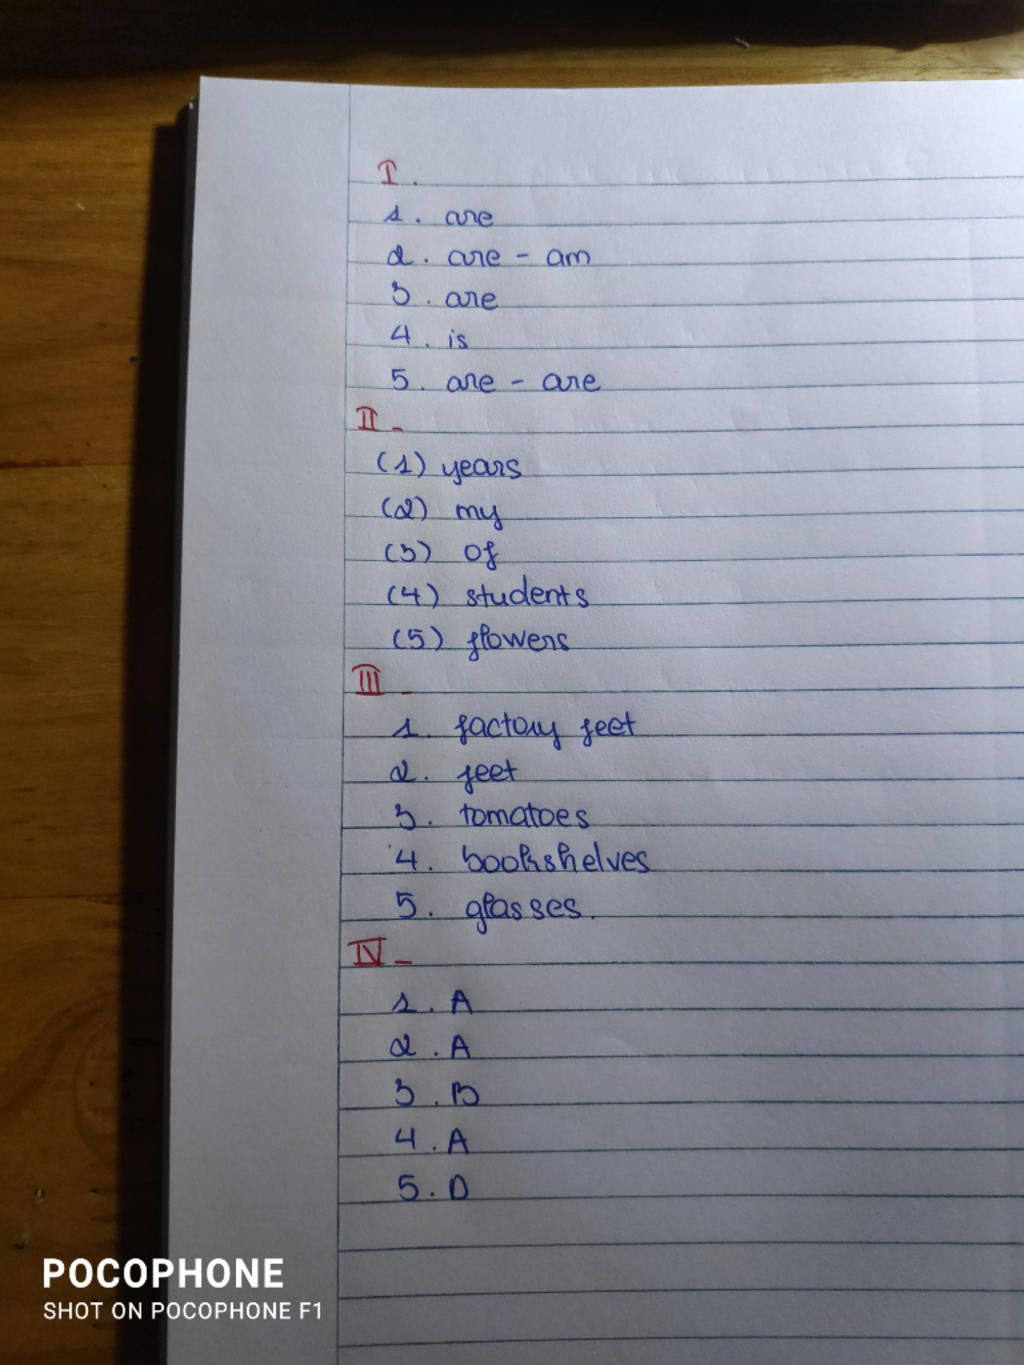 I.
1. are
2. are - am
3. are
4. is
5. are - are
II -
(1) years
(2) my
(3) of
(4) students
(5) flowers
III -
1. factory feet
2. feet
3. tomatoes
4. bookshelves
5. glasses.
IV -
1. A
2. A
3. B
4. A
5. D
POCOPHONE
SHOT ON POCOPHONE F1